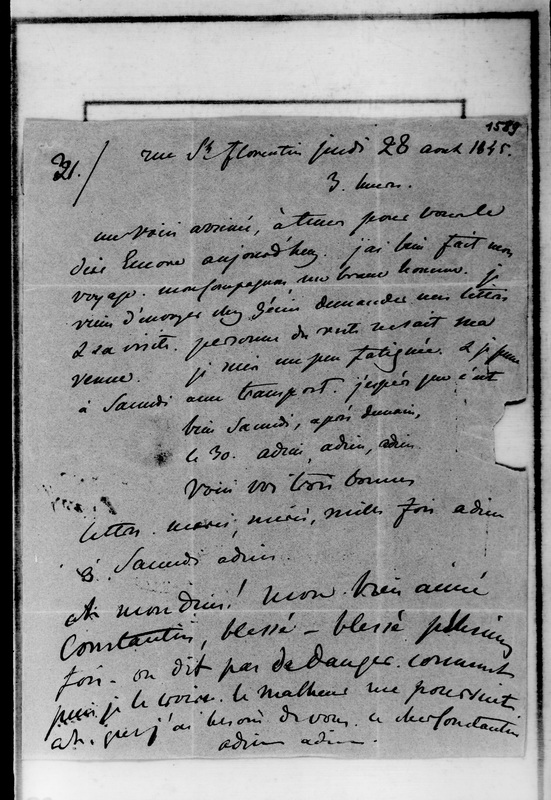 1589
31./ rue St florentin jeudi 28 aout 1845.
3. heures.
me voici arrivée, à tems pour vous le
dire Encore aujourd'huy. j'ai bien fait mon
voyage. mon compagnon, un brave homme. je
viens d'envoyer chez Génie demander mes lettres
& sa visite. personne du reste ne sait ma
venue. je suis un peu fatiguée. & je pense
à Samedi avec transport. j'espère que c'est
bien Samedi, après demain,
le 30. adieu, adieu, adieu
Voici vos trois bonnes
lettres. merci, merci, mille fois adieu
à Samedi adieu.
ah mon dieu! mon bien aimé
Constantin, blessé – blessé plusieurs
fois – on dit pas de danger. comment
puis je le croire. le malheur me poursuit
ah, que j'ai besoin de vous. ce cher Constantin
adieu adieu.